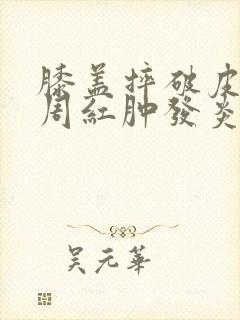 膝盖摔破皮
周红肿發炎
吴元華